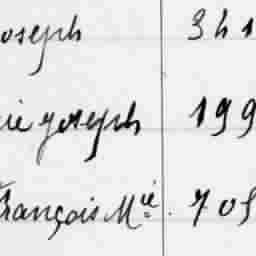 oseph 341
ie joseph 199
François Mie. 705